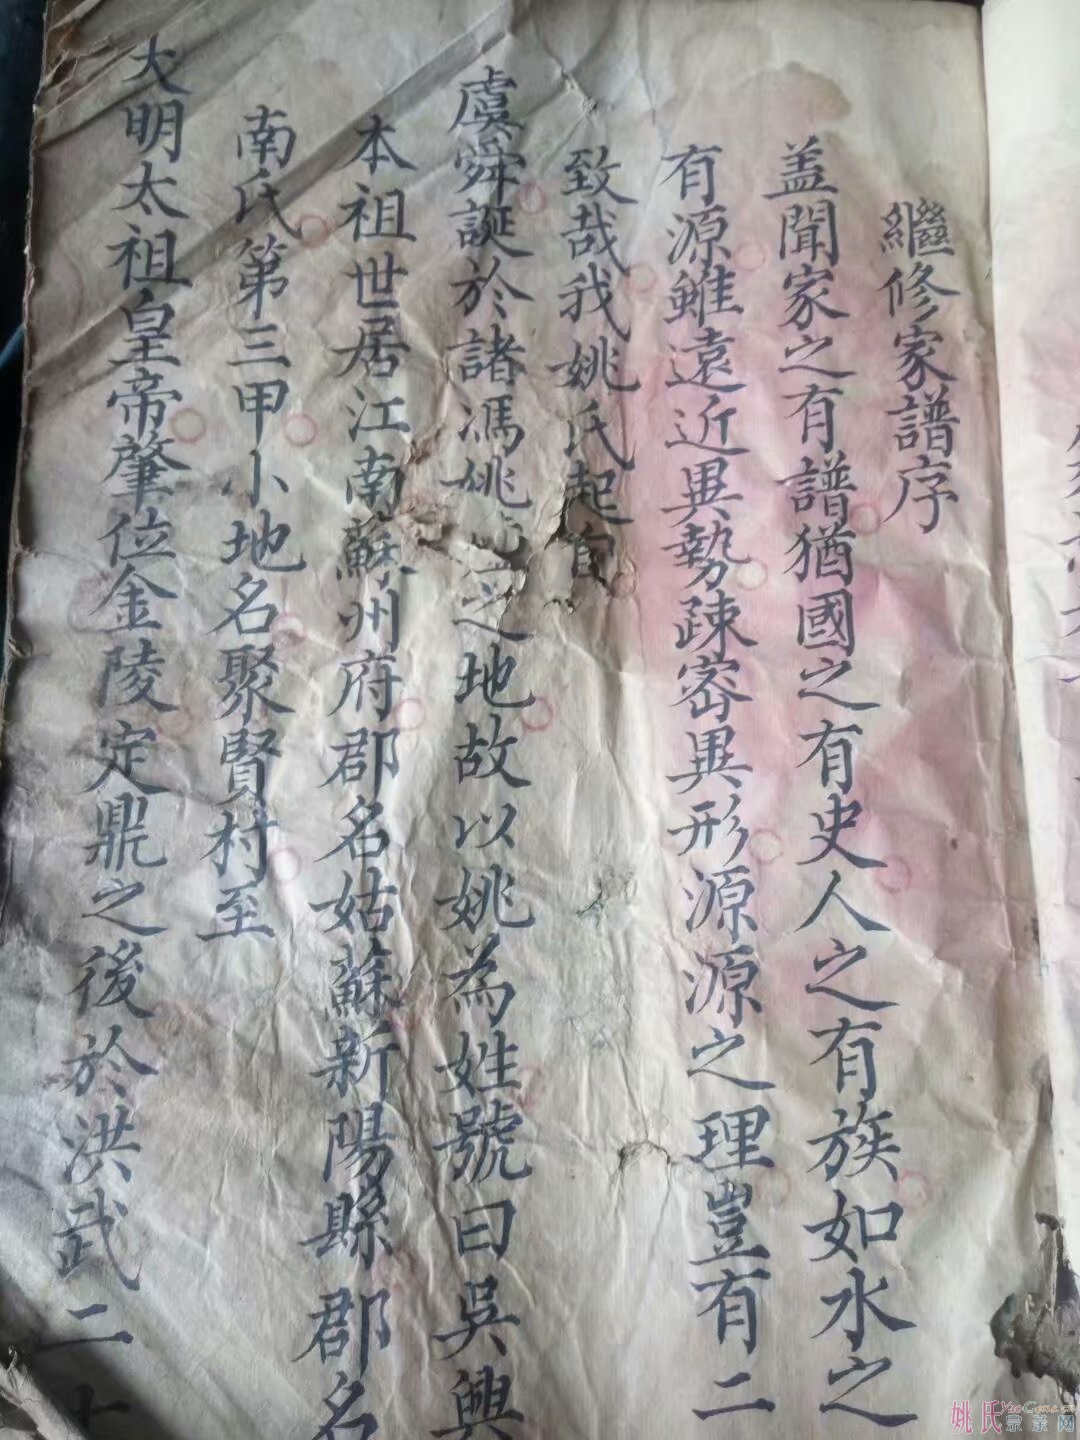 繼修家譜序
盖聞家之有譜猶國之有史人之有族如水之
有源雖遠近異勢疎密異形源源之理豈有二
致哉我姚氏起自
虞舜誕於諸馮姚之地故以姚為姓號曰吳興
本祖世居江南蘇州府郡名姑蘇新陽縣郡名
南氏第三甲小地名聚賢村至
大明太祖皇帝肇位金陵定鼎之後於洪武二十
姚氏宗亲网